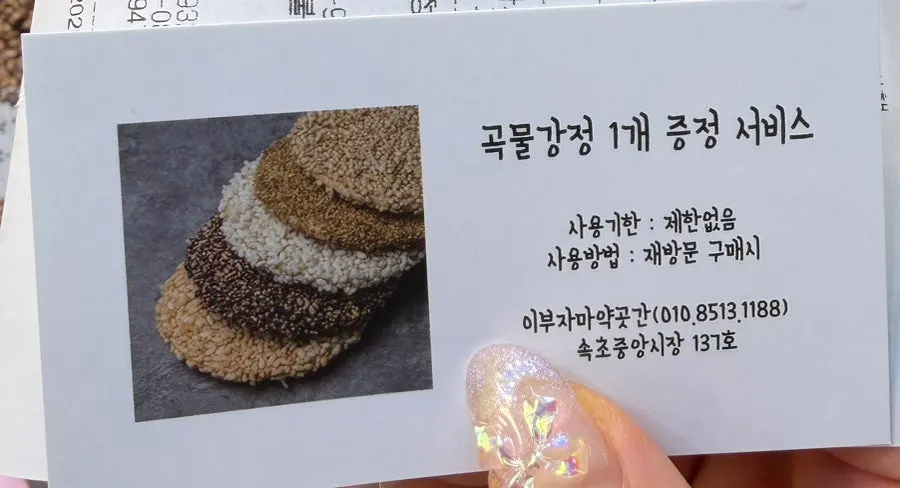 곡물강정 1개 증정 서비스
사용기한 : 제한없음
사용방법 : 재방문 구매시
이부자마약곳간(010.8513.1188)
속초중앙시장 137호